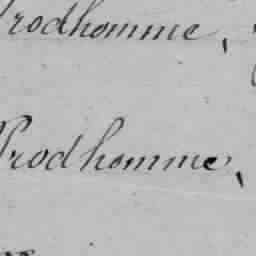 Prodhomme,
Prodhomme,